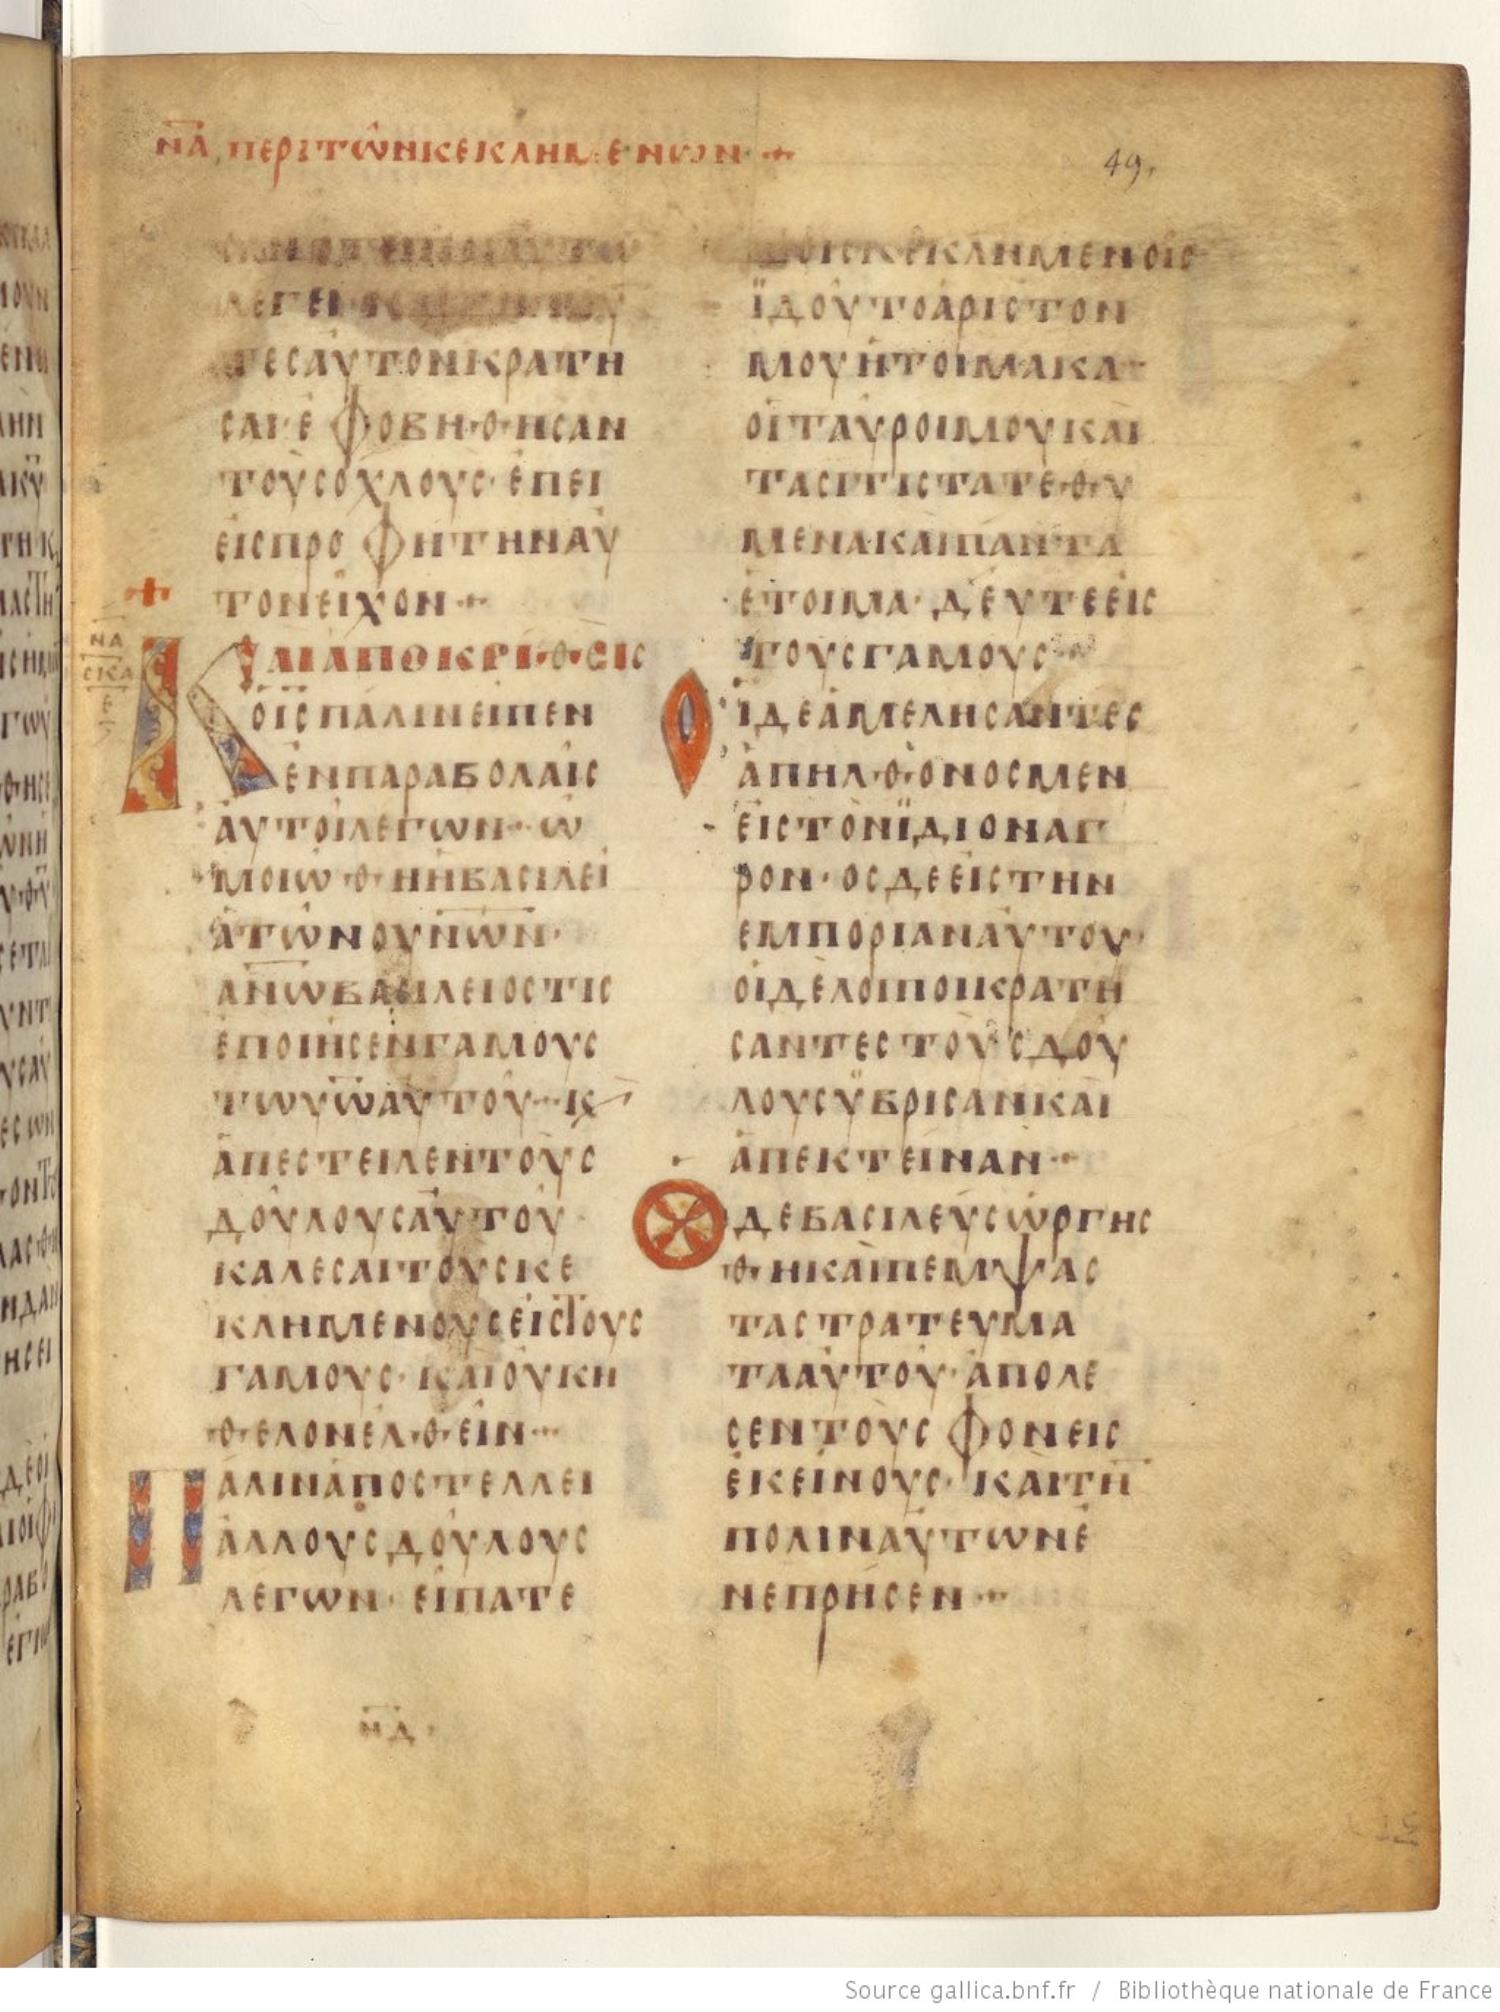 ΝΑ ΠΕΡΙΤΩΝΚΕΚΛΗΜΕΝΩΝ
49.
ΛΕΓΕΙ
ΤΕСΑΥΤΟΝΚΡΑΤΗ
СΑΙ·ΕΦΟΒΗΘΗСΑΝ
ΤΟΥСΟΧΛΟΥС·ΕΠΕΙ
ΕΙСΠΡΟΦΗΤΗΝΑΥ
ΤΟΝΕΙΧΟΝ
ΝΑ
СΚΑ
Ε
ΚΑΙΑΠΟΚΡΙΘΕΙС
ΟΙСΠΑΛΙΝΕΙΠΕΝ
ΕΝΠΑΡΑΒΟΛΑΙС
ΑΥΤΟΙΛΕΓΩΝ·Ω
ΜΟΙΩΘΗΗΒΑСΙΛΕΙ
ΑΤΩΝΟΥΝΩΝ·
ΑΝΩΒΑСΙΛΕΙΟСΤΙС
ΕΠΟΙΗСΕΝΓΑΜΟΥС
ΤΩΥΩΑΥΤΟΥ··Κ
ΑΠΕСΤΕΙΛΕΝΤΟΥС
ΔΟΥΛΟΥСΑΥΤΟΥ
ΚΑΛΕСΑΙΤΟΥСΚΕ
ΚΛΗΜΕΝΟΥСΕΙСΤΟΥС
ΓΑΜΟΥС·ΚΑΙΟΥΚΗ
ΘΕΛΟΝΕΛΘΕΙΝ···
ΠΑΛΙΝΑΠΟСΤΕΛΛΕΙ
ΑΛΛΟΥСΔΟΥΛΟΥС
ΛΕΓΩΝ·ΕΙΠΑΤΕ
ΤΟΙСΚΕΚΛΗΜΕΝΟΙС
ΪΔΟΥΤΟΑΡΙСΤΟΝ
ΜΟΥΗΤΟΙΜΑΚΑ·
ΟΙΤΑΥΡΟΙΜΟΥΚΑΙ
ΤΑСΙΤΙСΤΑΤΕΘΥ
ΜΕΝΑ·ΚΑΙΠΑΝΤΑ
ΕΤΟΙΜΑ·ΔΕΥΤΕΕΙС
ΤΟΥСΓΑΜΟΥС
ΟΙΔΕΑΜΕΛΗСΑΝΤΕС
ΑΠΗΛΘΟΝΟСΜΕΝ
ΕΙСΤΟΝΪΔΙΟΝΑΓ
ΡΟΝ·ΟСΔΕΕΙСΤΗΝ
ΕΜΠΟΡΙΑΝΑΥΤΟΥ·
ΟΙΔΕΛΟΙΠΟΙΚΡΑΤΗ
СΑΝΤΕСΤΟΥСΔΟΥ
ΛΟΥСΫΒΡΙСΑΝΚΑΙ
ΑΠΕΚΤΕΙΝΑΝ··
ΟΔΕΒΑСΙΛΕΥСΩΡΓΗС
ΘΗΚΑΙΠΕΜΨΑС
ΤΑСΤΡΑΤΕΥΜΑ
ΤΑΑΥΤΟΥ·ΑΠΟΛΕ
СΕΝΤΟΥСΦΟΝΕΙС
ΕΚΕΙΝΟΥС·ΚΑΙΤΗ
ΠΟΛΙΝΑΥΤΩΝΕ
ΝΕΠΡΗСΕΝ···
ΝΔ·
Source gallica.bnf.fr / Bibliothèque nationale de France